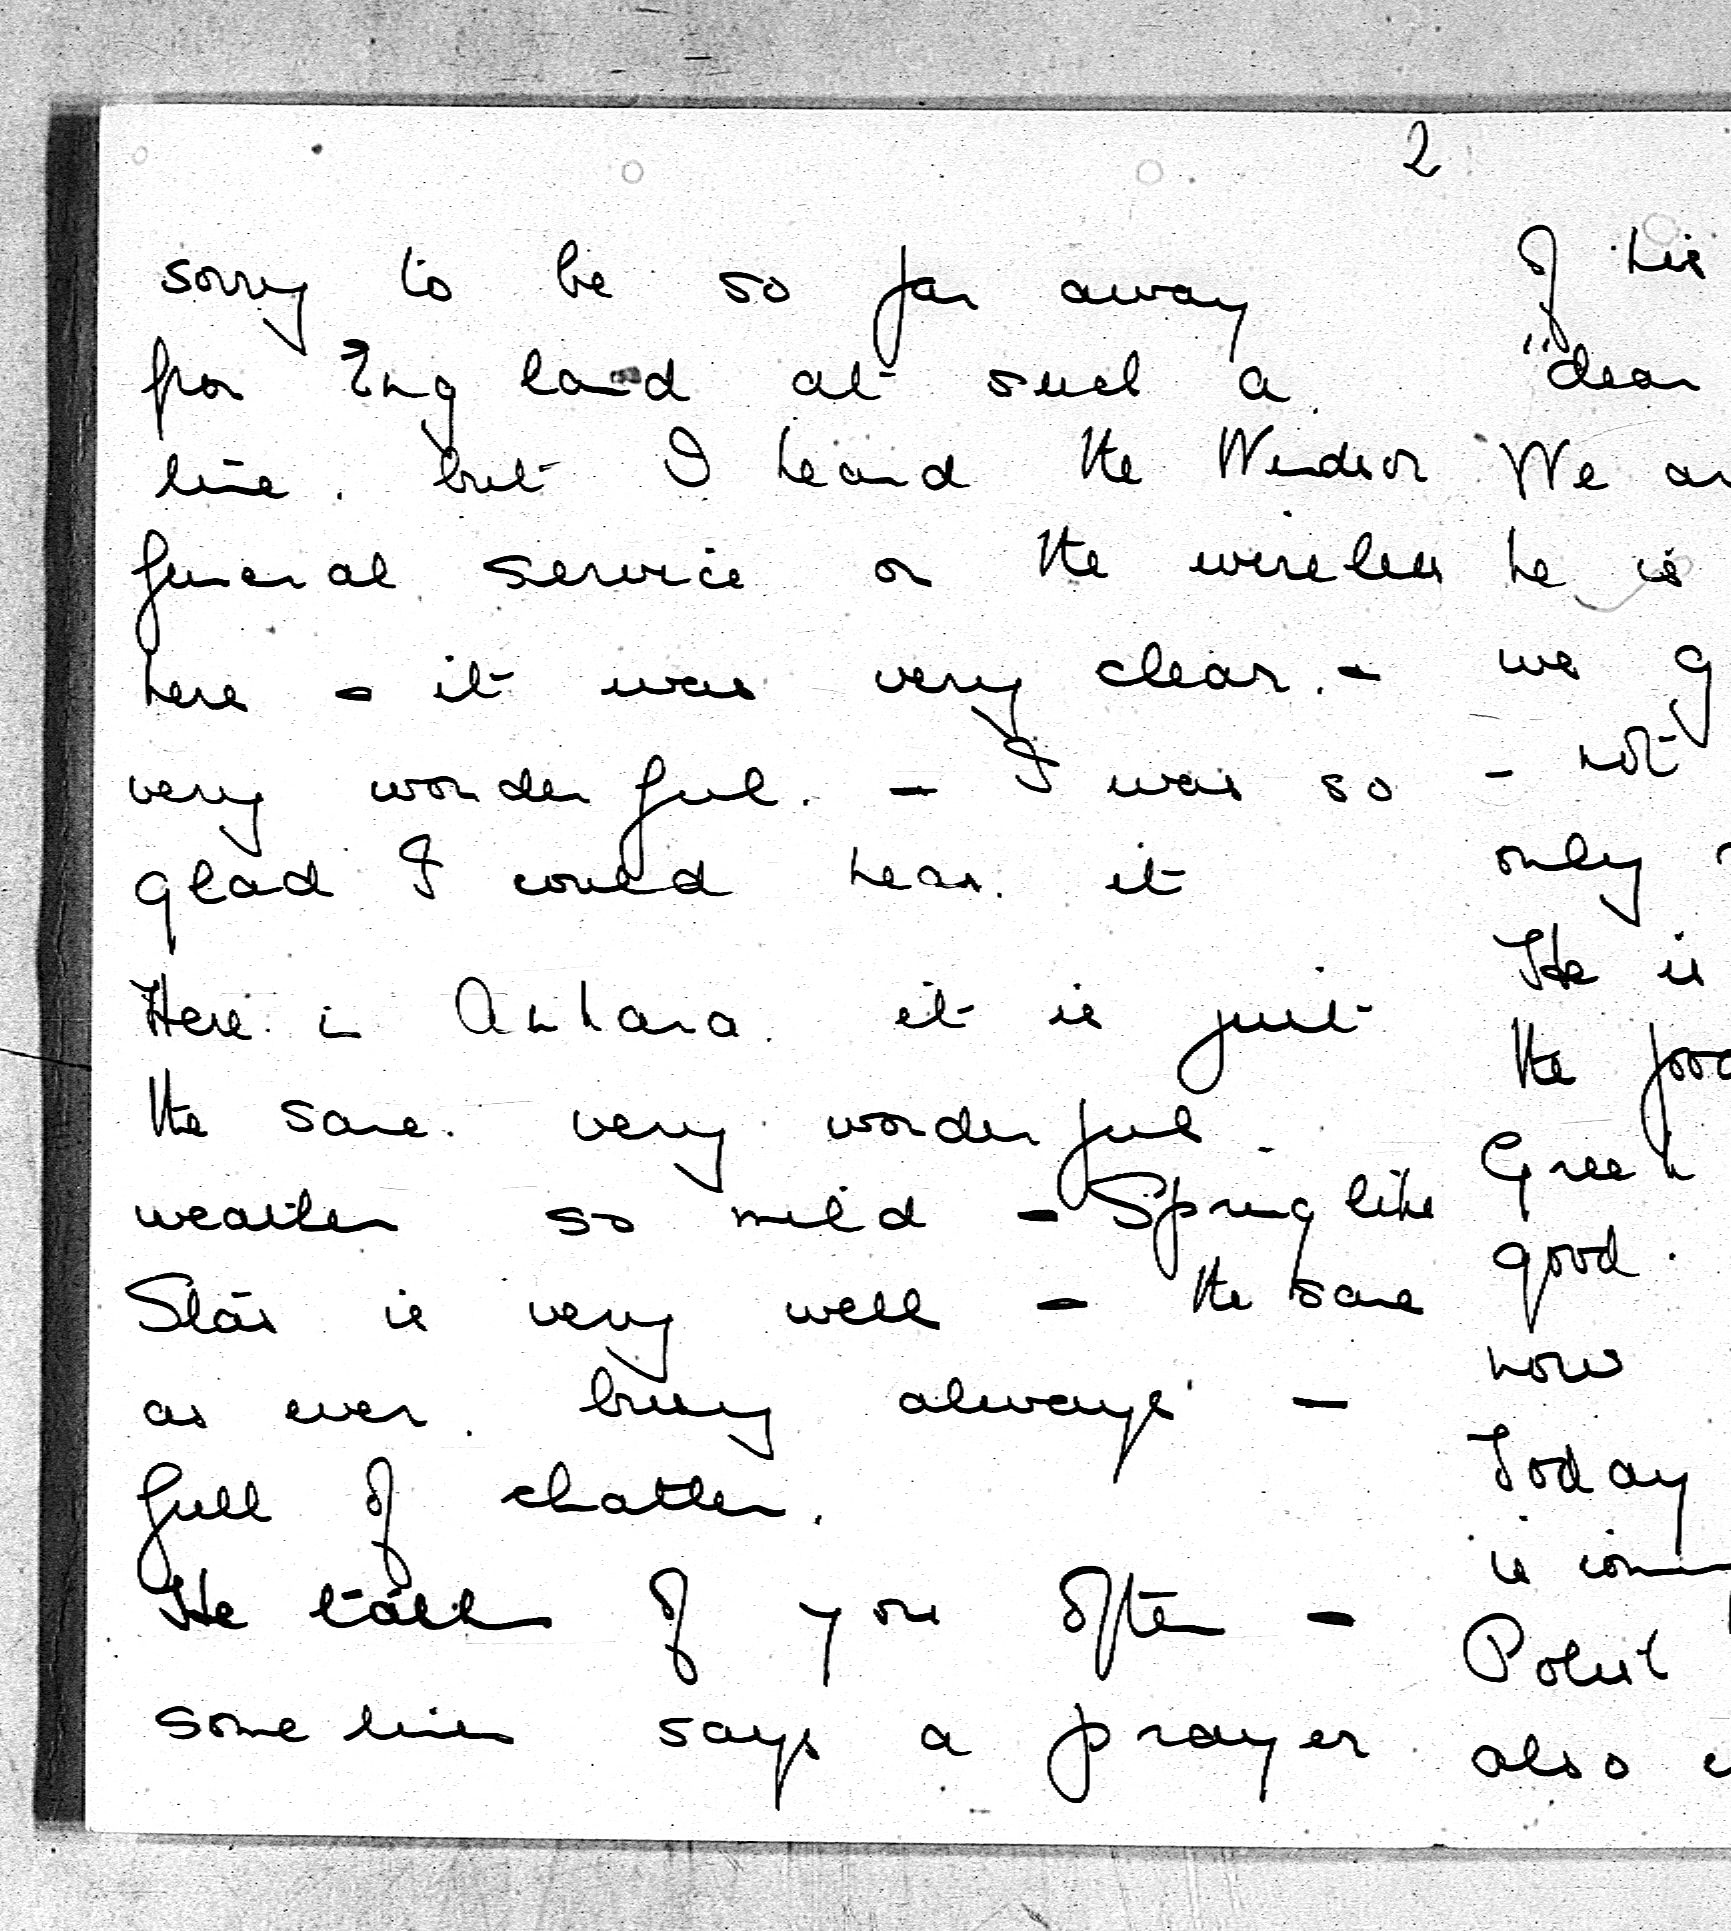 2
sorry to be so far away
from England at such a
time. but I heard the Windsor
funeral service on the wireless
here - it was very clear. -
very wonderful. - I was so
glad I could hear. it
Here in Ankara. it is just
the same. very wonderful
weather so mild - Spring like
Stas is very well - the same
as ever. busy always -
full of chatter.
He talks of you often -
some times says a prayer
of his
"dear
We ar
he is
we g
- not
only
He is
the foo
Greek
good.
now
Today
is comin
Polish
also